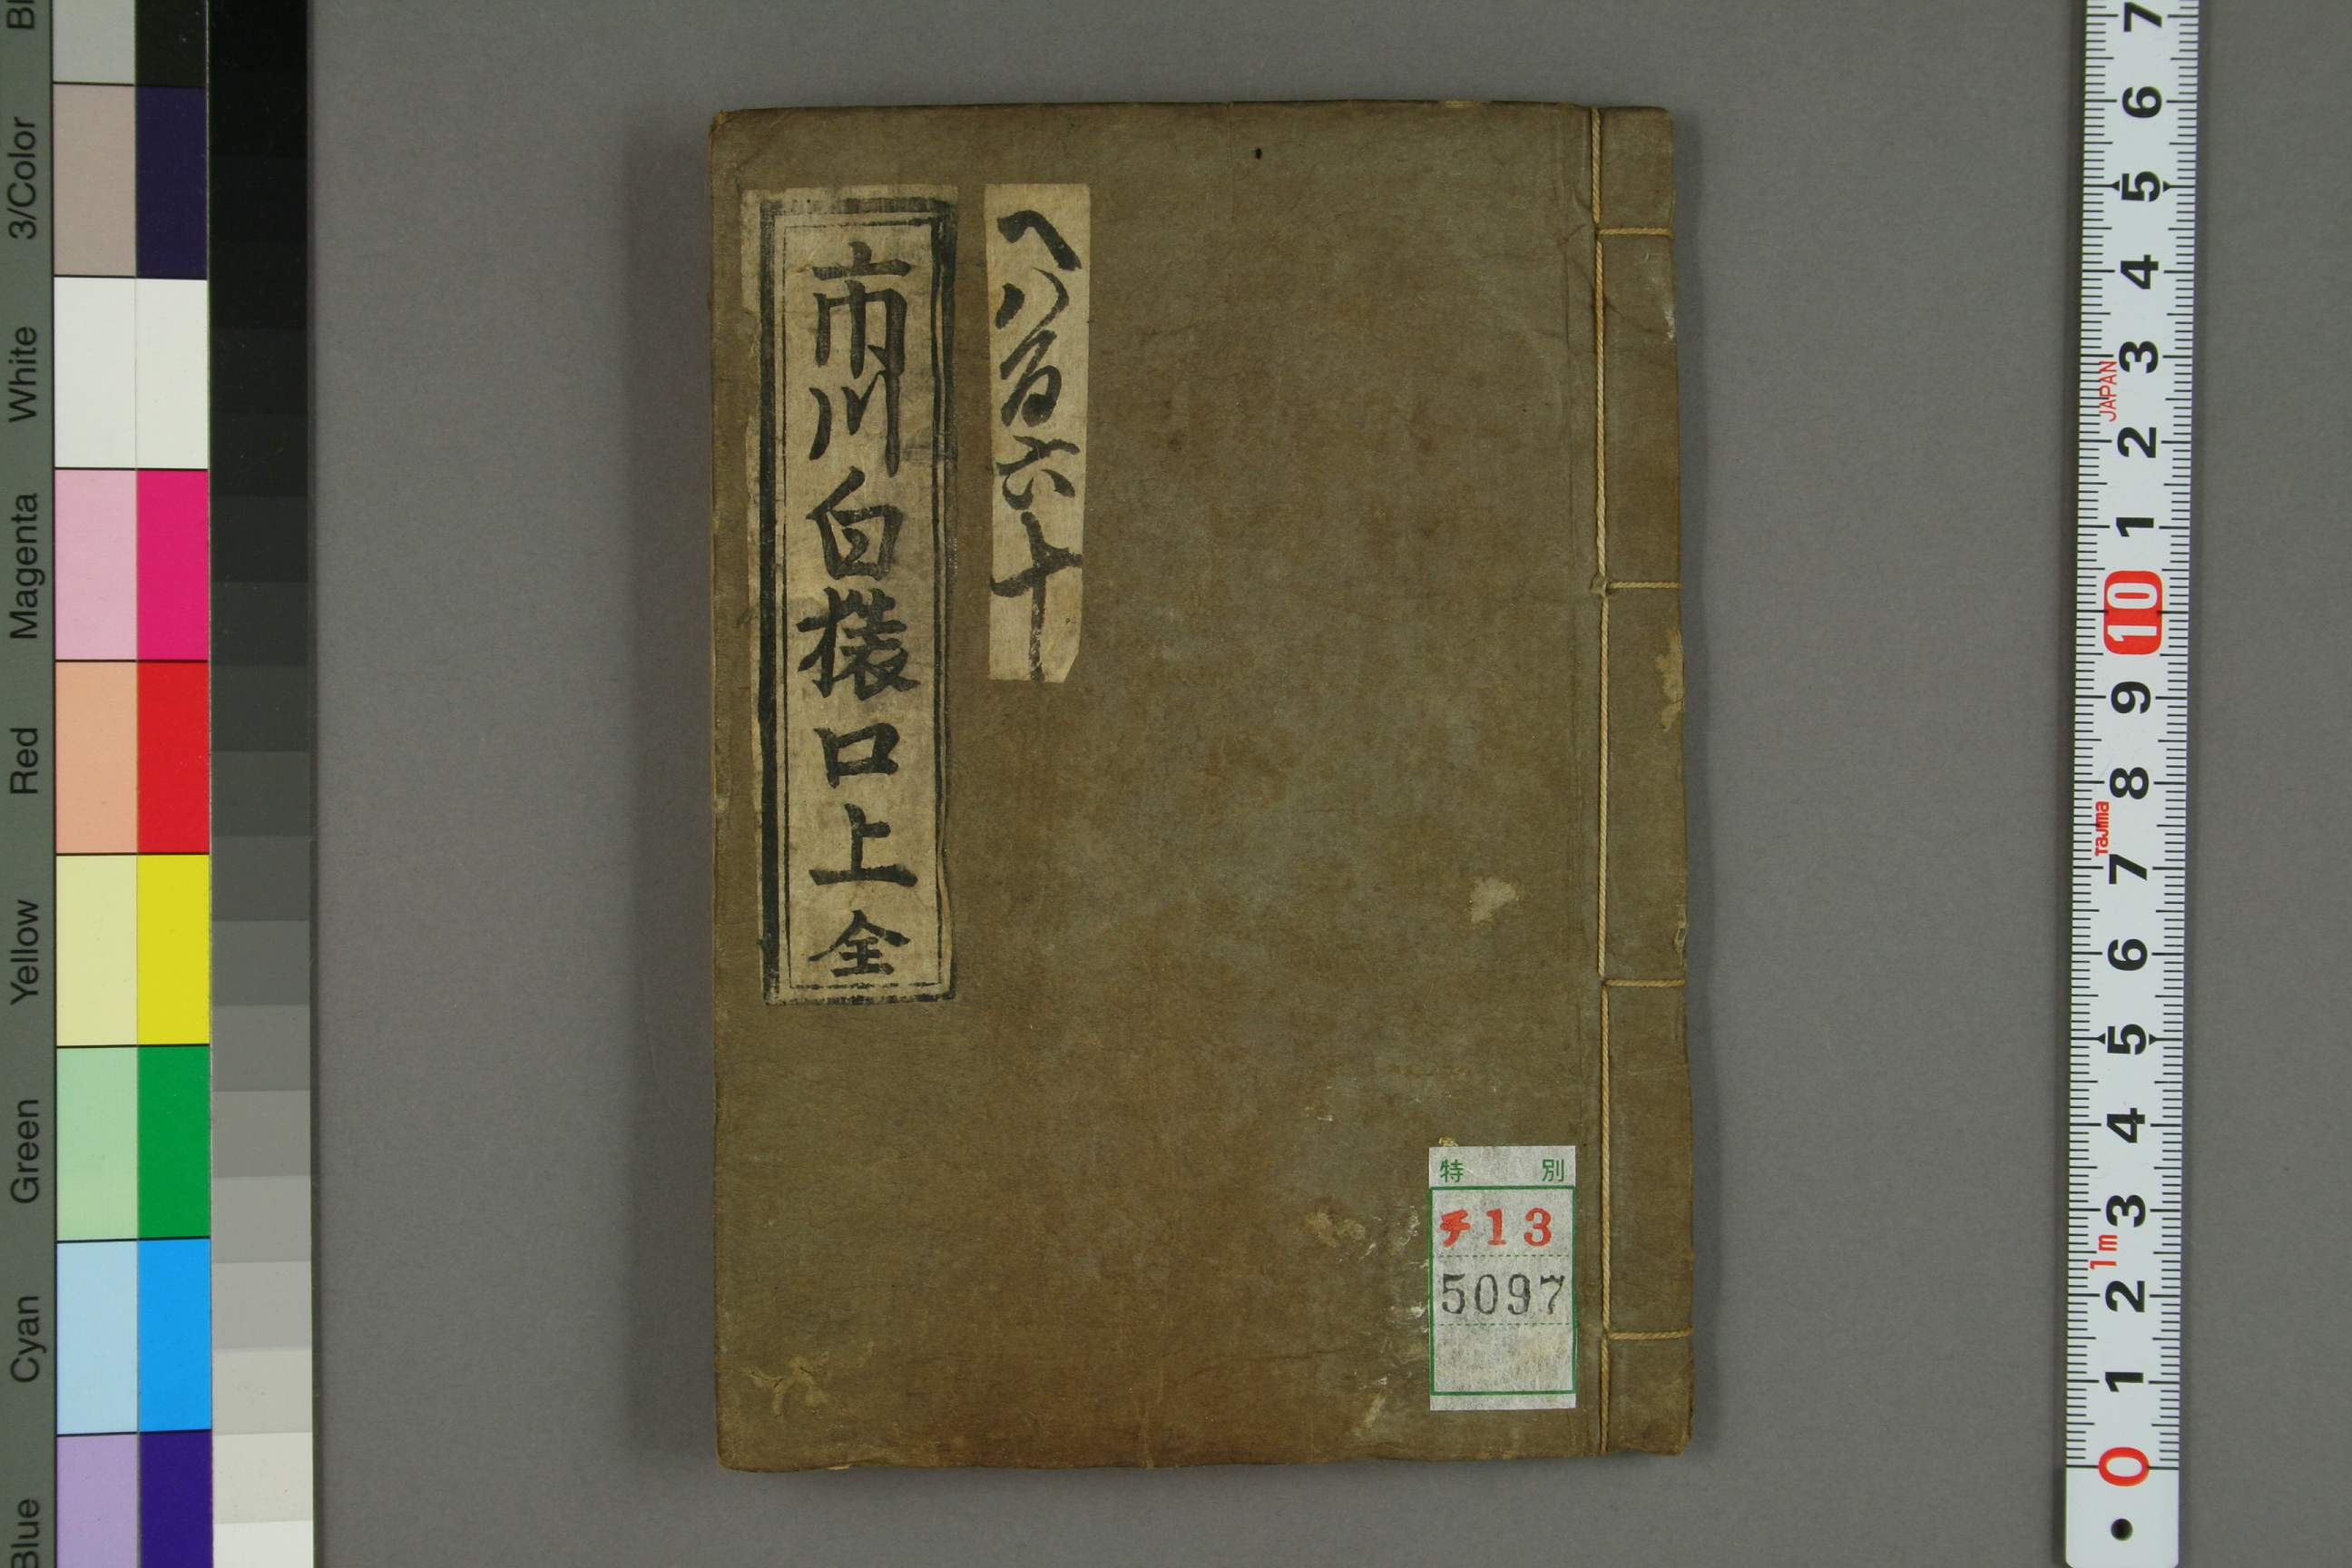 へ八百六十
市川白猿口上 全
特 別
チ13
5097
Blue
Cyan
Green
Yellow
Red
Magenta
White
3/Color
0 1m 1 2 3 4 5 6 7 8 9 10 1 2 3 4 5 6 7
Tajima
JAPAN